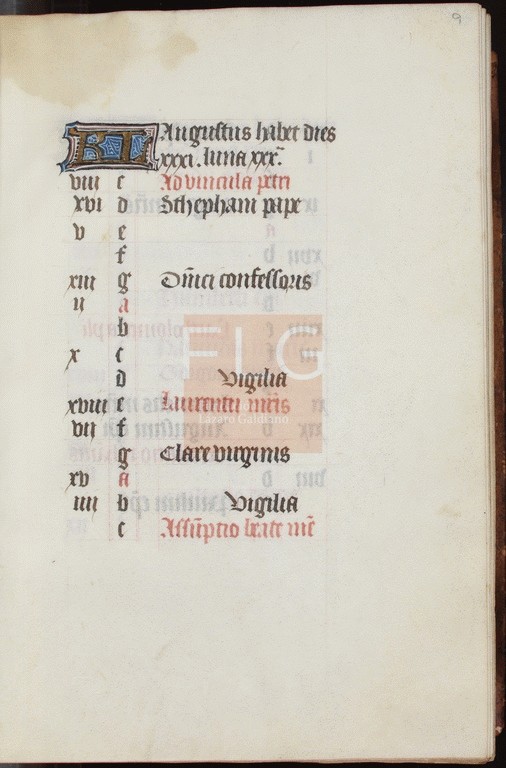 9
KL Augustus habet dies
xxxi. luna xxx.
viii c Ad vincula petri
xvi d Sthephani pape
v e
f
xiii g Dnici confessoris
ii a
b
x c
d Vigilia
xviii e Laurentii mris
vii f
g Clare virginis
xv a
iiii b Vigilia
c Assuptio beate me
FLG
Lázaro Galdiano